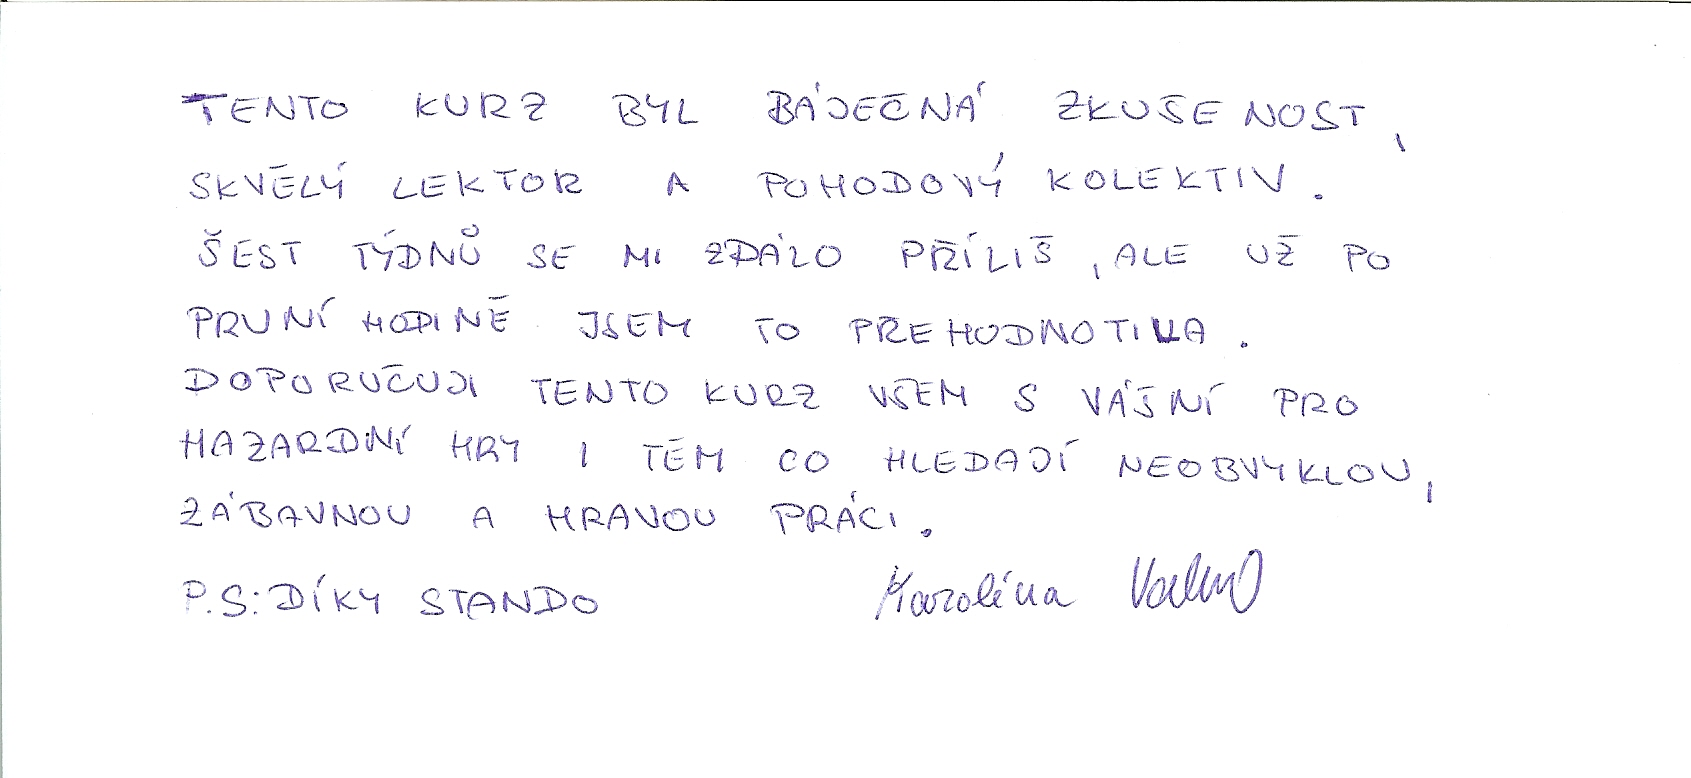 TENTO KURZ BYL BÁJEČNÁ ZKUŠENOST,
SKVĚLÝ LEKTOR A POHODOVÝ KOLEKTIV.
ŠEST TÝDNŮ SE MI ZDÁLO PŘÍLIŠ, ALE UŽ PO
PRVNÍ HODINĚ JSEM TO PŘEHODNOTILA.
DOPORUČUJI TENTO KURZ VŠEM S VÁŠNÍ PRO
HAZARDNÍ HRY I TĚM CO HLEDAJÍ NEOBVYKLOU,
ZÁBAVNOU A HRAVOU PRÁCI.
P.S: DÍKY STANDO
Karolína